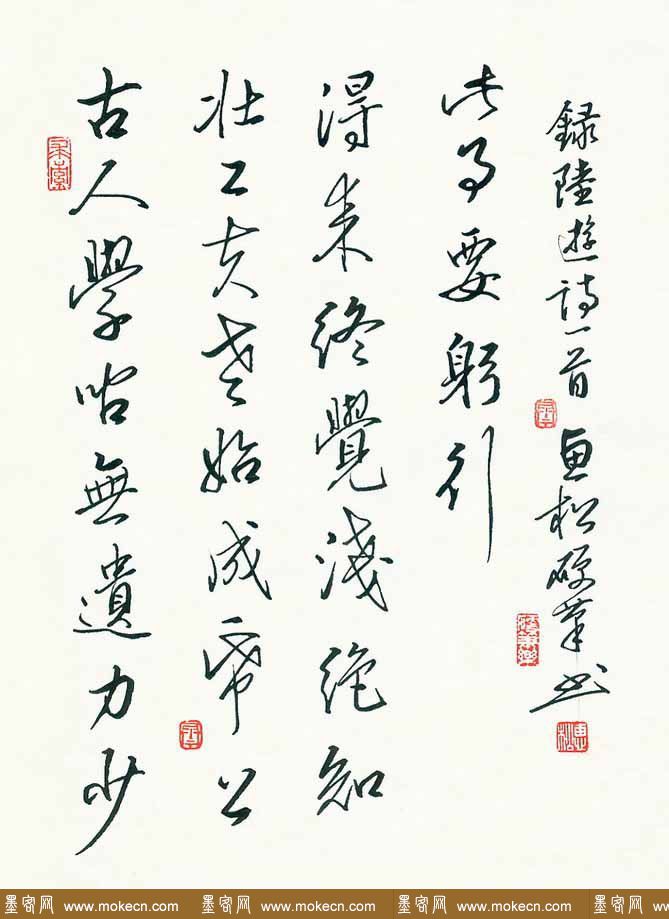 古人學問無遺力少
壯工夫老始成帋上
得來終覺淺絕知
此事要躬行
錄陸遊詩一首 惠松硬筆書
墨客网 www.mokecn.com 墨客网 www.mokecn.com 墨客网 www.mokecn.com 墨客网